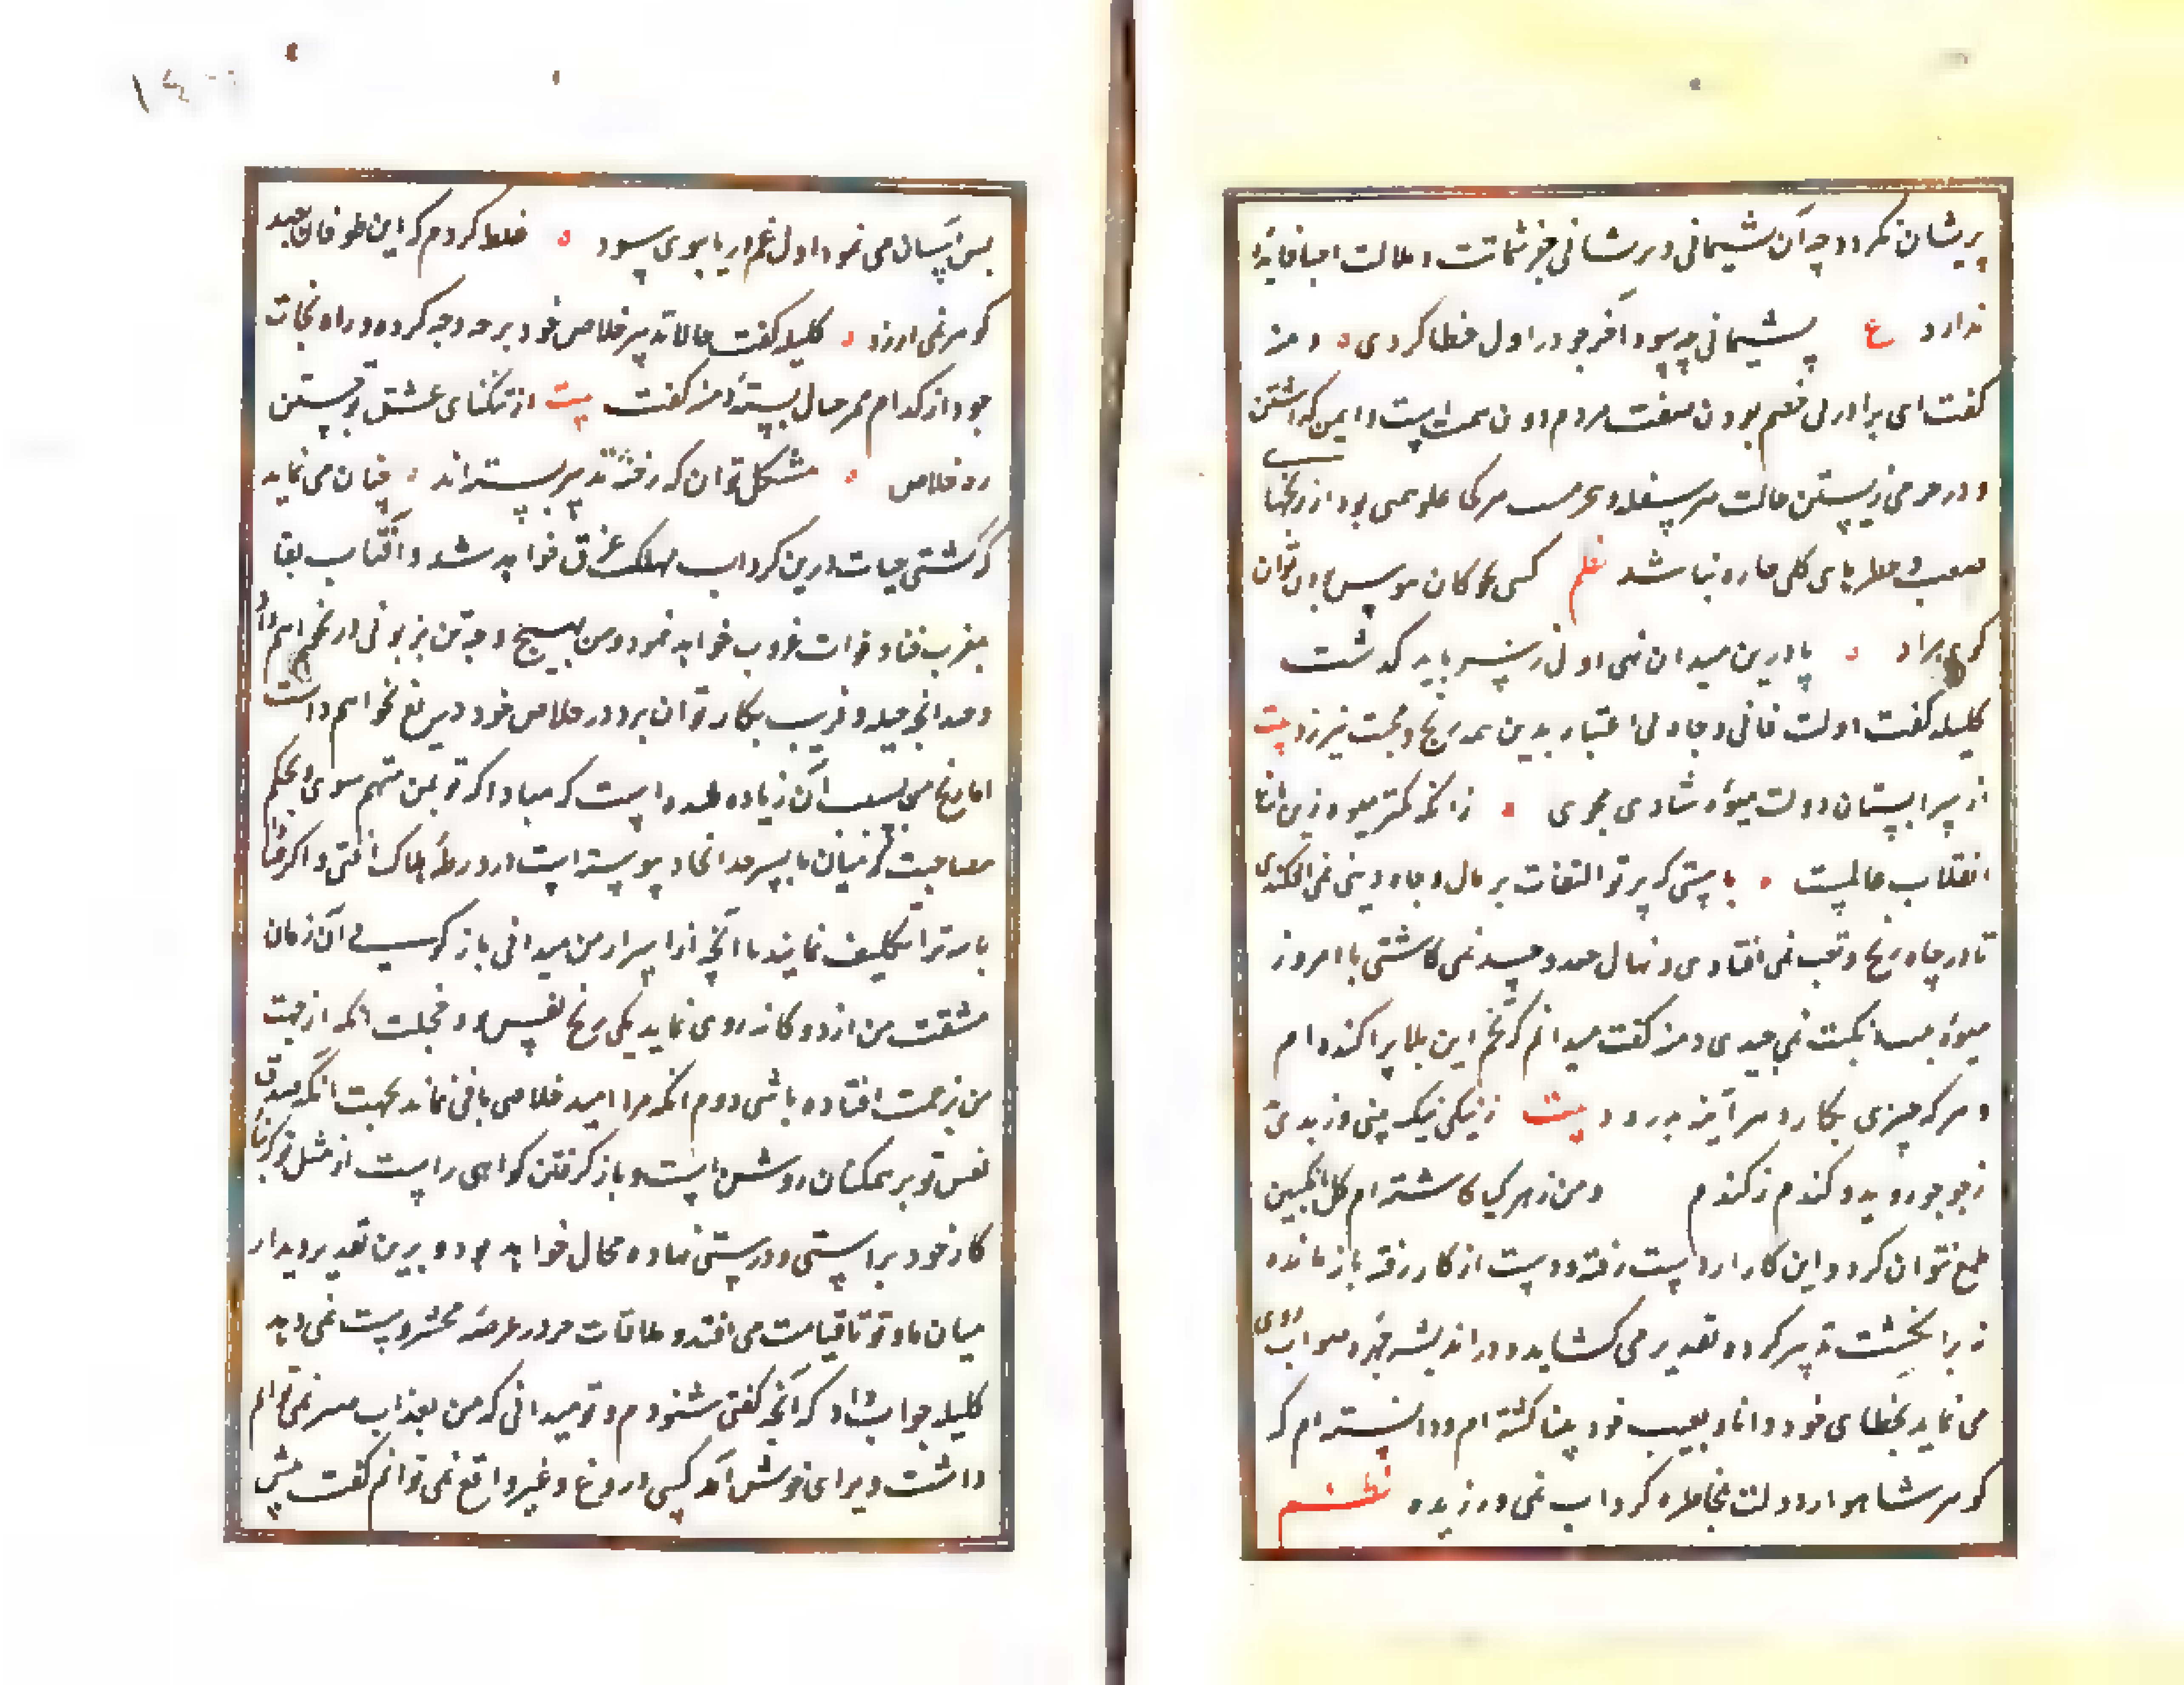 پریشان کردد چه آن پشیمانی و پریشانی جز شماتت و ملالت احبا فایده
ندارد ع پشیمانی چه سود آخر چو در اول خطا کردی دمنه
کفت ای برادر بی خصم بودن صفت مردم دون همت است و ایمن
و در زیستن حالت هر سفله هر کجا علو همتی بود از رنجها
صعب و خطرهای کلی چاره نباشد نظم کسی کو کان توان
پا درین میدان نمی اولی ز سر باید کذشت
کلیله کفت دولت فانی و جاه بی اعتبار بدین همه رنج و محنت نیرزد بیت
از سرابستان دولت میوه شادی مجوی زانکه
انقلاب عالمست بایستی که پرتو التفات بر مال و جاه دنیی نمی افکندی
تا در چاه رنج و تعب نمی افتادی و نهال حقد و حسد نمی کاشتی تا امروز
میوه نکبت نمی چیدی دمنه کفت میدانم که تخم این بلا پراکنده ام
و هر که چیزی بکارد هر آینه بدرود بیت ز نیکی نیک بینی وز بدی بد
ز جو جو روید و کندم ز کندم و من زهر کیا کاشته ام کل انکبین
طمع نتوان کرد و این کار از دست رفته و دست از کار رفته باز مانده
نه برانکشت تدبیر کره تقدیر می کشاید و در اندیشه چهره صواب روی
می نماید بخطای خود دانا و بعیب خود بینا کشته ام و دانسته ام که
کوهر شاهوار دولت بمخاطره کرداب نمی ورزیده نظم
بس آسان می نمود اول غم دریا ببوی سود غلط کردم که این طوفان بصد
کوهر نمی ارزد کلیله کفت حالا تدبیر خلاص خود بر چه وجه کرده و راه نجات
خود از کدام ممر خیال بسته دمنه کفت بیت از تنکنای عشق تو جستن
ره خلاص مشکل توان که رخنه تدبیر بسته اند چنان می نماید
که کشتی حیات درین کرداب مهلک غرق خواهد شد و آفتاب بقا
بمغرب فنا و فوات غروب خواهد نمود و من بهیچ وجه تن بزبونی در نخواهم داد
و چندانچه حیله و فریب بکار توان برد در خلاص خود دریغ نخواهم داشت
اما رنج من بسبب آن زیاده شده است که مبادا که تو بمن متهم شوی و بحکم
مصاحبت که میان ما بسرحد اتحاد پیوسته است در ورطه هلاک افتی و اکر
ترا تکلیف نمایند تا آنچه از اسرار من میدانی باز کویی آن زمان
مشقت من از دو کانه روی نماید یکی رنج نفس تو و خجلت آنکه از جهت
من بزحمت افتاده باشی دوم آنکه مرا امید خلاصی باقی نماند بجهت آنکه صدق
نفس تو بر همکنان روشن است و باز کرفتن کواهی راست از مثل تو که بنا
کار خود براستی و درستی نهاده محال خواهد بود و برین تقدیر دیدار
میان ما و تو تا قیامت می افتد و ملاقات جز در عرصه محشر دست نمی دهد
کلیله جواب داد که آنچه کفتی شنودم و تو میدانی که من بعذاب صبر نمی توانم
داشت و برای خوش آمد کسی دروغ و غیر واقع نمی توانم کفت پیش